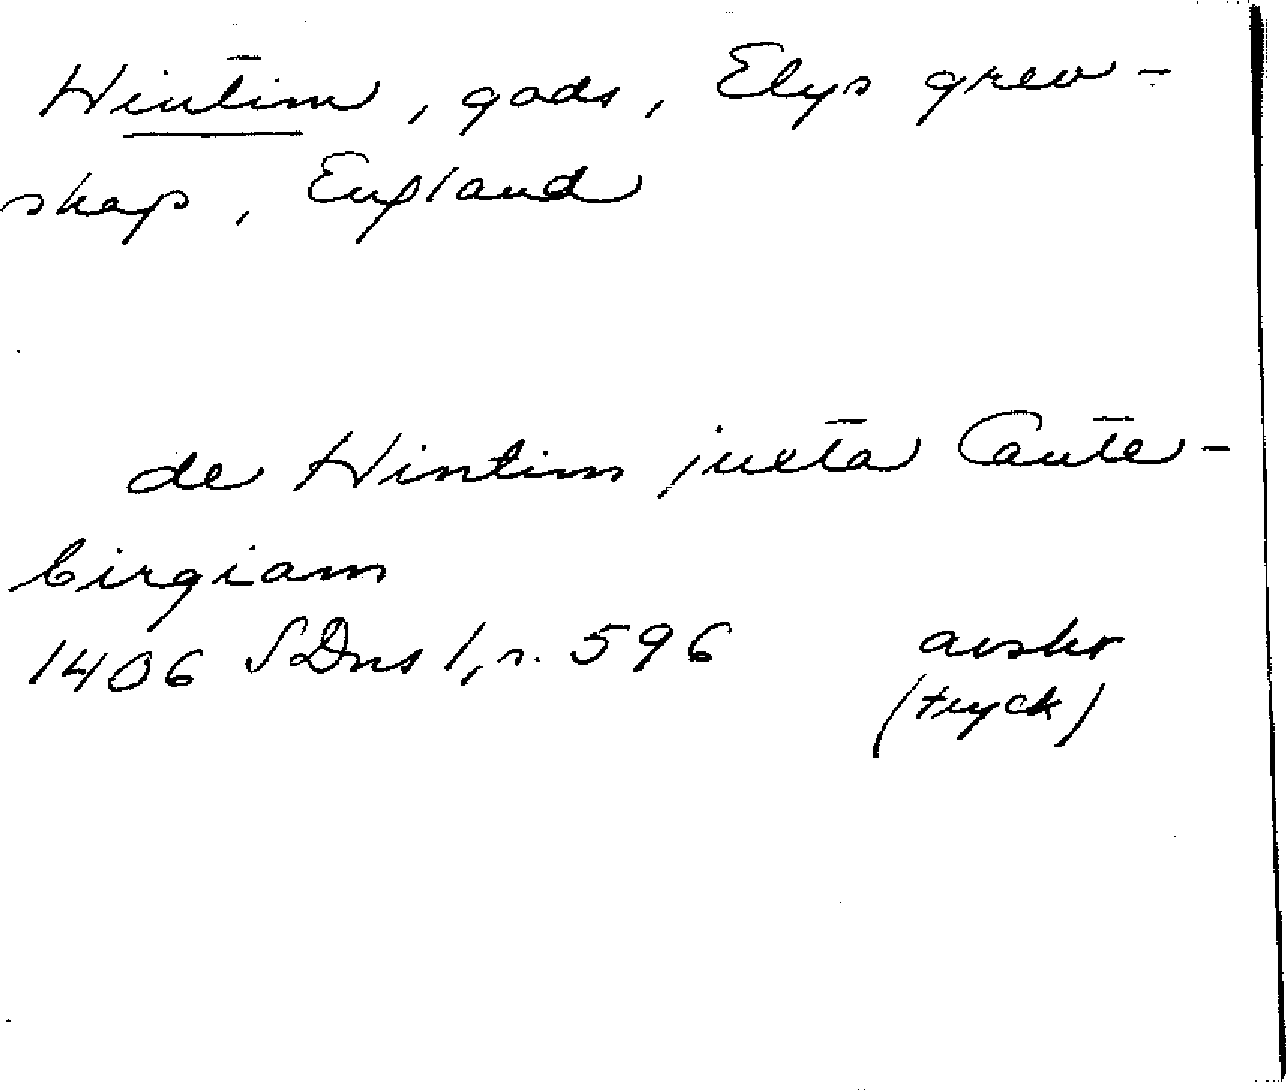 Hintim, gods, Elys grev-
skap, England
de Hintim juxta Cante-
birgiam
1406 SDns 1, s. 596 avskr
(tryck)